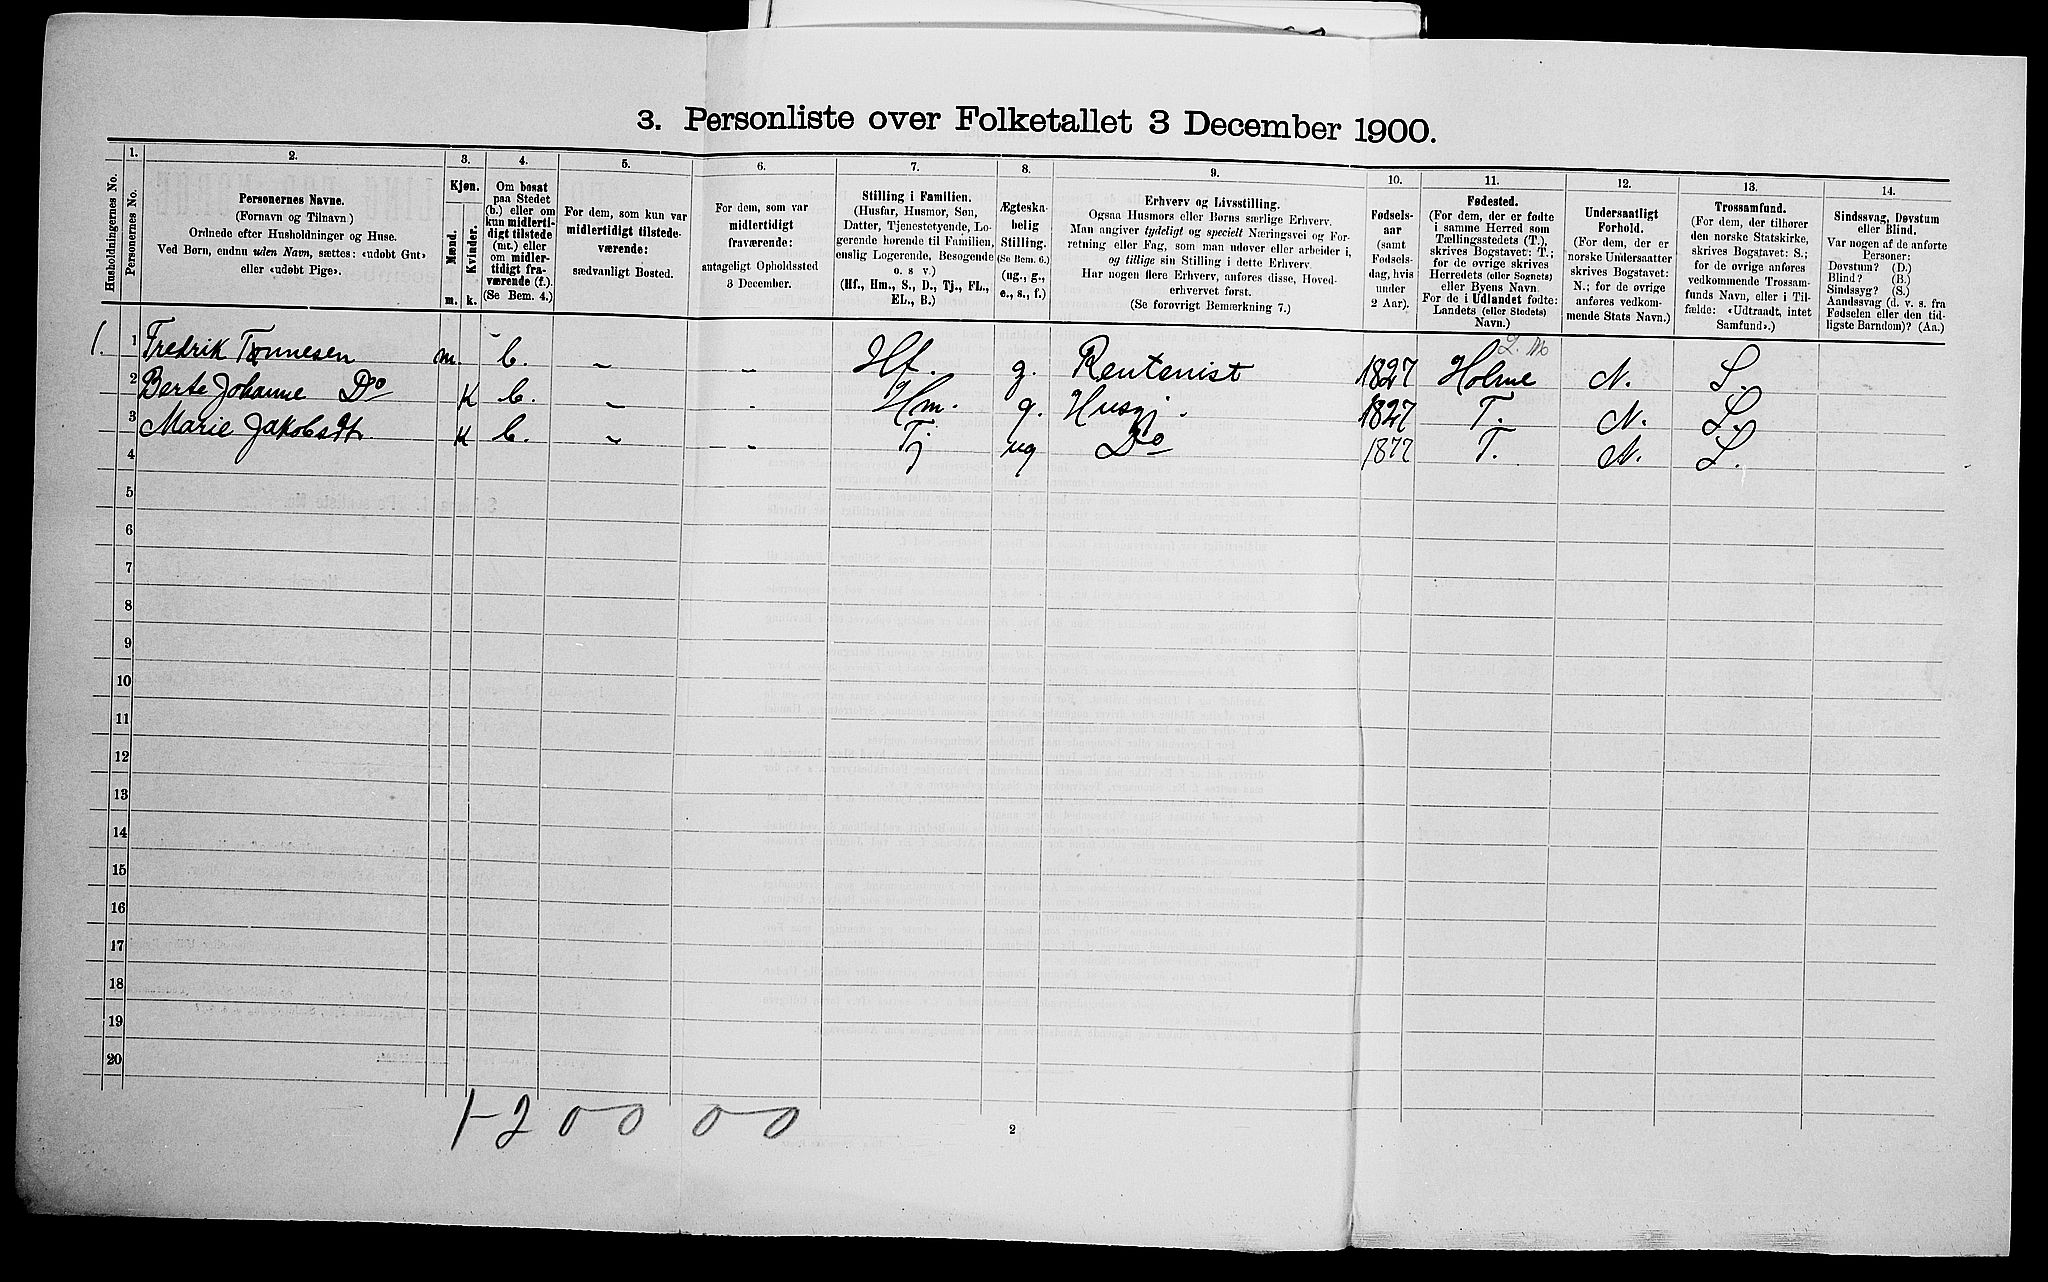 3. Personliste over Folketallet 3 December 1900.
1. 2. 3. 4. 5. 6. 7. 8. 9. 10. 11. 12. 13. 14.
Husholdningernes No.
Personernes No.
Personernes Navne.
(Fornavn og Tilnavn)
Ordnede efter Husholdninger og Huse.
Ved Børn, endnu uden Navn, sættes: «udøbt Gut»
eller «udøbt Pige».
Kjøn.
Mænd.
Kvinder.
m. k.
Om bosat
paa Stedet
(b.) eller om
kun midlerti-
digt tilstede
(mt.) eller
om midler-
tidigt fra-
værende (f.).
(Se Bem. 4.)
For dem, som kun var
midlertidigt tilstede-
værende:
sædvanligt Bosted.
For dem, som var
midlertidigt
fraværende:
antageligt Opholdssted
3 December.
Stilling i Familien.
(Husfar, Husmor, Søn,
Datter, Tjenestetyende, Lo-
gerende hørende til Familien,
enslig Logerende, Besøgende
o. s v.)
(Hf., Hm., S., D., Tj., FL.,
EL., B.)
Ægteska-
belig
Stilling.
(Se Bem. 6.)
(ug., g.,
e., s., f.)
Erhverv og Livsstilling.
Ogsaa Husmors eller Børns særlige Erhverv.
Man angiver tydeligt og specielt Næringsvei og For-
retning eller Fag, som man udøver eller arbeider i,
og tillige sin Stilling i dette Erhverv.
Har nogen flere Erhverv, anføres disse, Hoved-
erhvervet først.
(Se forøvrigt Bemærkning 7.)
Fødsels-
aar
(samt
Fødsels-
dag, hvis
under
2 Aar).
Fødested.
(For dem, der er fødte
i samme Herred som
Tællingsstedets (T.),
skrives Bogstavet: T.;
for de øvrige skrives
Herredets (eller Sognets)
eller Byens Navn.
For de i Udlandet fødte:
Landets (eller Stedets)
Navn.)
Undersaatligt
Forhold.
(For dem, der er
norske Undersaatter
skrives Bogstavet:
N.; for de øvrige
anføres vedkom-
mende Stats Navn.)
Trossamfund.
(For dem, der tilhører
den norske Statskirke,
skrives Bogstavet: S.;
for de øvrige anføres
vedkommende Trossam-
funds Navn, eller i Til-
fælde: «Udtraadt, intet
Samfund».)
Sindssvag, Døvstum
eller Blind.
Var nogen af de anførte
Personer:
Døvstum? (D.)
Blind? (B.)
Sindssyg? (S.)
Aandssvag (d. v. s. fra
Fødselen eller den tid-
ligste Barndom)? (Aa.)
1. 1 Fredrik Tønnesen m. b. - - Hf. g. Rentenist 1827 Holme N. S.
2 Berte Johanne Do K b. - - Hm. g. Husgj. 1827 T. N. S.
3 Marie Jakobsdt. K b. - - Tj ug Do 1877 T. N. S.
4
5
6
7
8
9
10
11
12
13
14
15
16
17
18
19
20
1-2 0 0 0 0
2